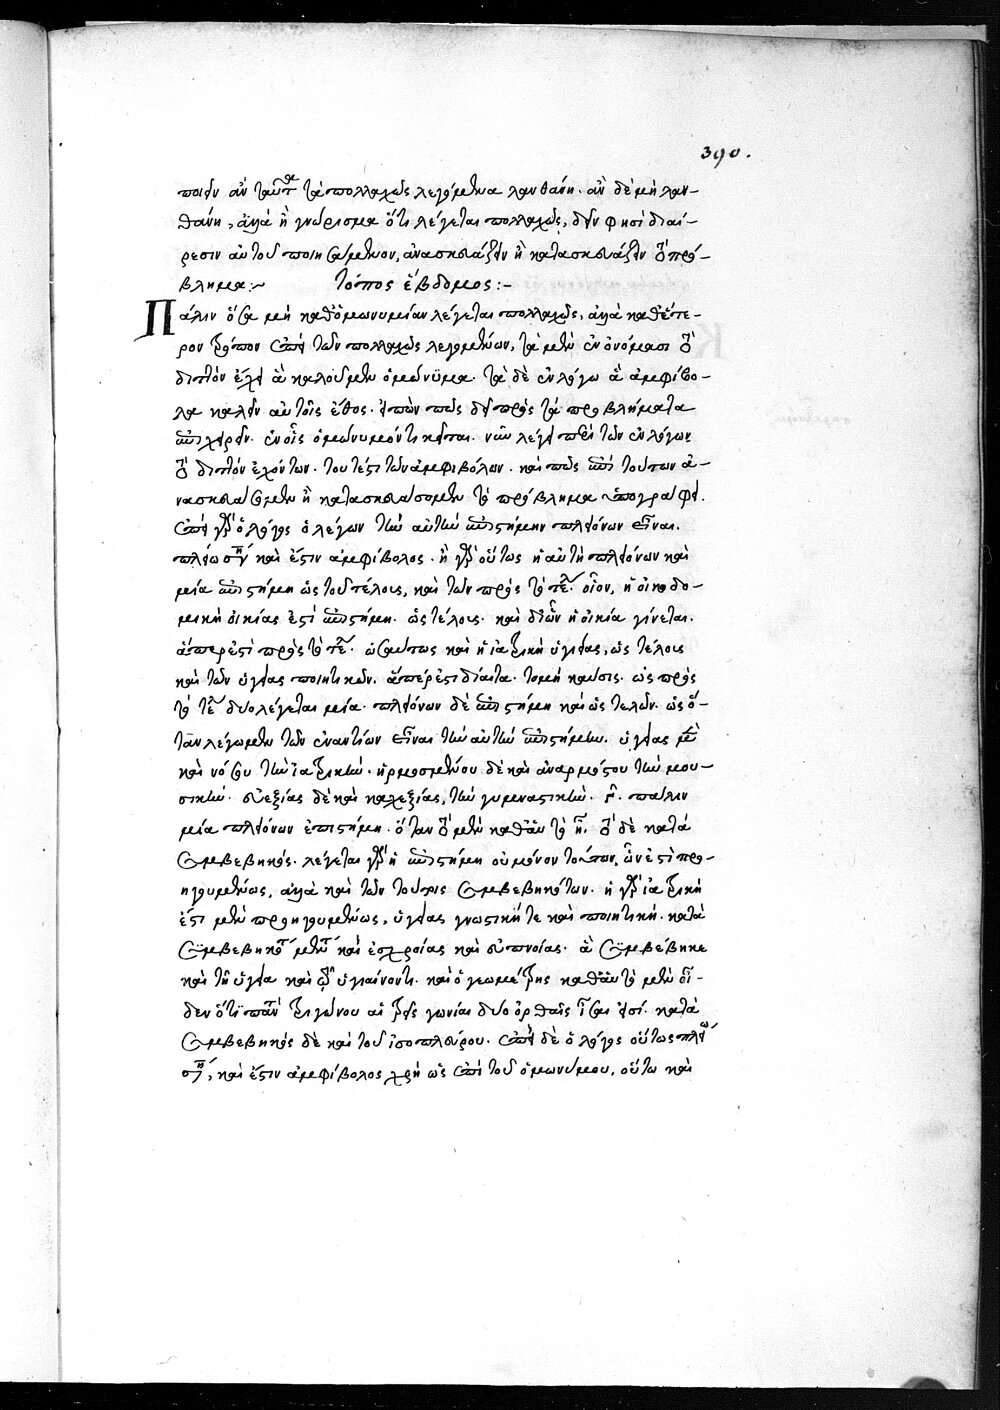 390.
ποιεῖν ἂν ταῦτα τὰ πολλαχῶς λεγόμενα λανθάνῃ. ἂν δὲ μὴ λαν-
θάνῃ, ἀλλὰ ᾖ γνώρισμα ὅτι λέγεται πολλαχῶς, δεῖν φησὶ διαί-
ρεσιν αὐτοῦ ποιησάμενον, ἀνασκευάζειν ἢ κατασκευάζειν τὸ πρό-
βλημα :~ τόπος ἕβδομος :-
Πάλιν ὅσα μὴ καθ' ὁμωνυμίαν λέγεται πολλαχῶς, ἀλλὰ καθ' ἕτε-
ρον τρόπον ἐπεὶ τῶν πολλαχῶς λεγομένων, τὰ μὲν ἐν ὀνόμασι τὸ
διττὸν ἔχει ἃ καλοῦμεν ὁμώνυμα. τὰ δὲ ἐν λόγῳ ἃ ἀμφίβο-
λα καλεῖν αὐτοῖς ἔθος. εἰπὼν πῶς δεῖ πρὸς τὰ προβλήματα
ἐπιχειρεῖν. ἐν οἷς ὁμώνυμόν τι κεῖται. νῦν λέγει περὶ τῶν ἐν λόγων
τὸ διττὸν ἐχόντων. τουτέστι τῶν ἀμφιβόλων. καὶ πῶς ἐπὶ τούτων ἀ-
νασκευάσομεν ἢ κατασκευάσομεν τὸ πρόβλημα ὑπογράφει.
ἐπεὶ γὰρ ὁ λόγος ὁ λέγων τὴν αὐτὴν ἐπιστήμην πλειόνων εἶναι.
πλείω σημαίνει καὶ ἔστιν ἀμφίβολος. ἢ γὰρ οὕτως ἡ αὐτὴ πλειόνων καὶ
μία ἐπιστήμη ὡς τοῦ τέλους, καὶ τῶν πρὸς τὸ τέλος. οἷον, ἡ οἰκοδο-
μικὴ οἰκίας ἐστὶ ἐπιστήμη. ὡς τέλους. καὶ δι' ὧν ἡ οἰκία γίνεται.
ἅπερ ἐστὶ πρὸς τὸ τέλος. ὡσαύτως καὶ ἡ ἰατρικὴ ὑγείας, ὡς τέλους
καὶ τῶν ὑγείας ποιητικῶν. ἅπερ ἐστι δίαιτα. τομὴ καῦσις. ὡς πρὸς
τὸ τέλος δύο λέγεται μία. πλειόνων δὲ ἐπιστήμη καὶ ὡς τελῶν. ὡς ὅ-
ταν λέγωμεν τῶν ἐναντίων εἶναι τὴν αὐτὴν ἐπιστήμην. ὑγείας μὲν
καὶ νόσου τὴν ἰατρικήν. ἡρμοσμένου δὲ καὶ ἀναρμόστου τὴν μου-
σικήν. εὐεξίας δὲ καὶ καχεξίας, τὴν γυμναστικήν. ἢ πάλιν
μία πλειόνων ἐπιστήμη. ὅταν τὸ μὲν καθ' αὑτὸ ᾖ. τὸ δὲ κατὰ
συμβεβηκός. λέγεται γὰρ ἡ ἐπιστήμη οὐ μόνον τούτων, ὧν ἐστὶ προ-
ηγουμένως, ἀλλὰ καὶ τῶν τούτοις συμβεβηκότων. ἡ γὰρ ἰατρικὴ
ἔστι μὲν προηγουμένως, ὑγείας γνωστική τε καὶ ποιητική. κατὰ
συμβεβηκὸς μέντοι καὶ εὐχροίας καὶ εὐπνοίας. ἃ συμβέβηκε
καὶ τῇ ὑγείᾳ καὶ τῷ ὑγιαίνοντι. καὶ ὁ γεωμέτρης καθ' αὑτὸ μὲν οἶ-
δεν ὅτι παντὸς τριγώνου αἱ τρεῖς γωνίαι δύο ὀρθαῖς ἴσαι εἰσί. κατὰ
συμβεβηκὸς δὲ καὶ τοῦ ἰσοπλεύρου. ἐπεὶ δὲ ὁ λόγος οὕτως πλείω
σημαίνει, καὶ ἔστιν ἀμφίβολος χρὴ ὡς ἐπὶ τοῦ ὁμωνύμου, οὕτω καὶ